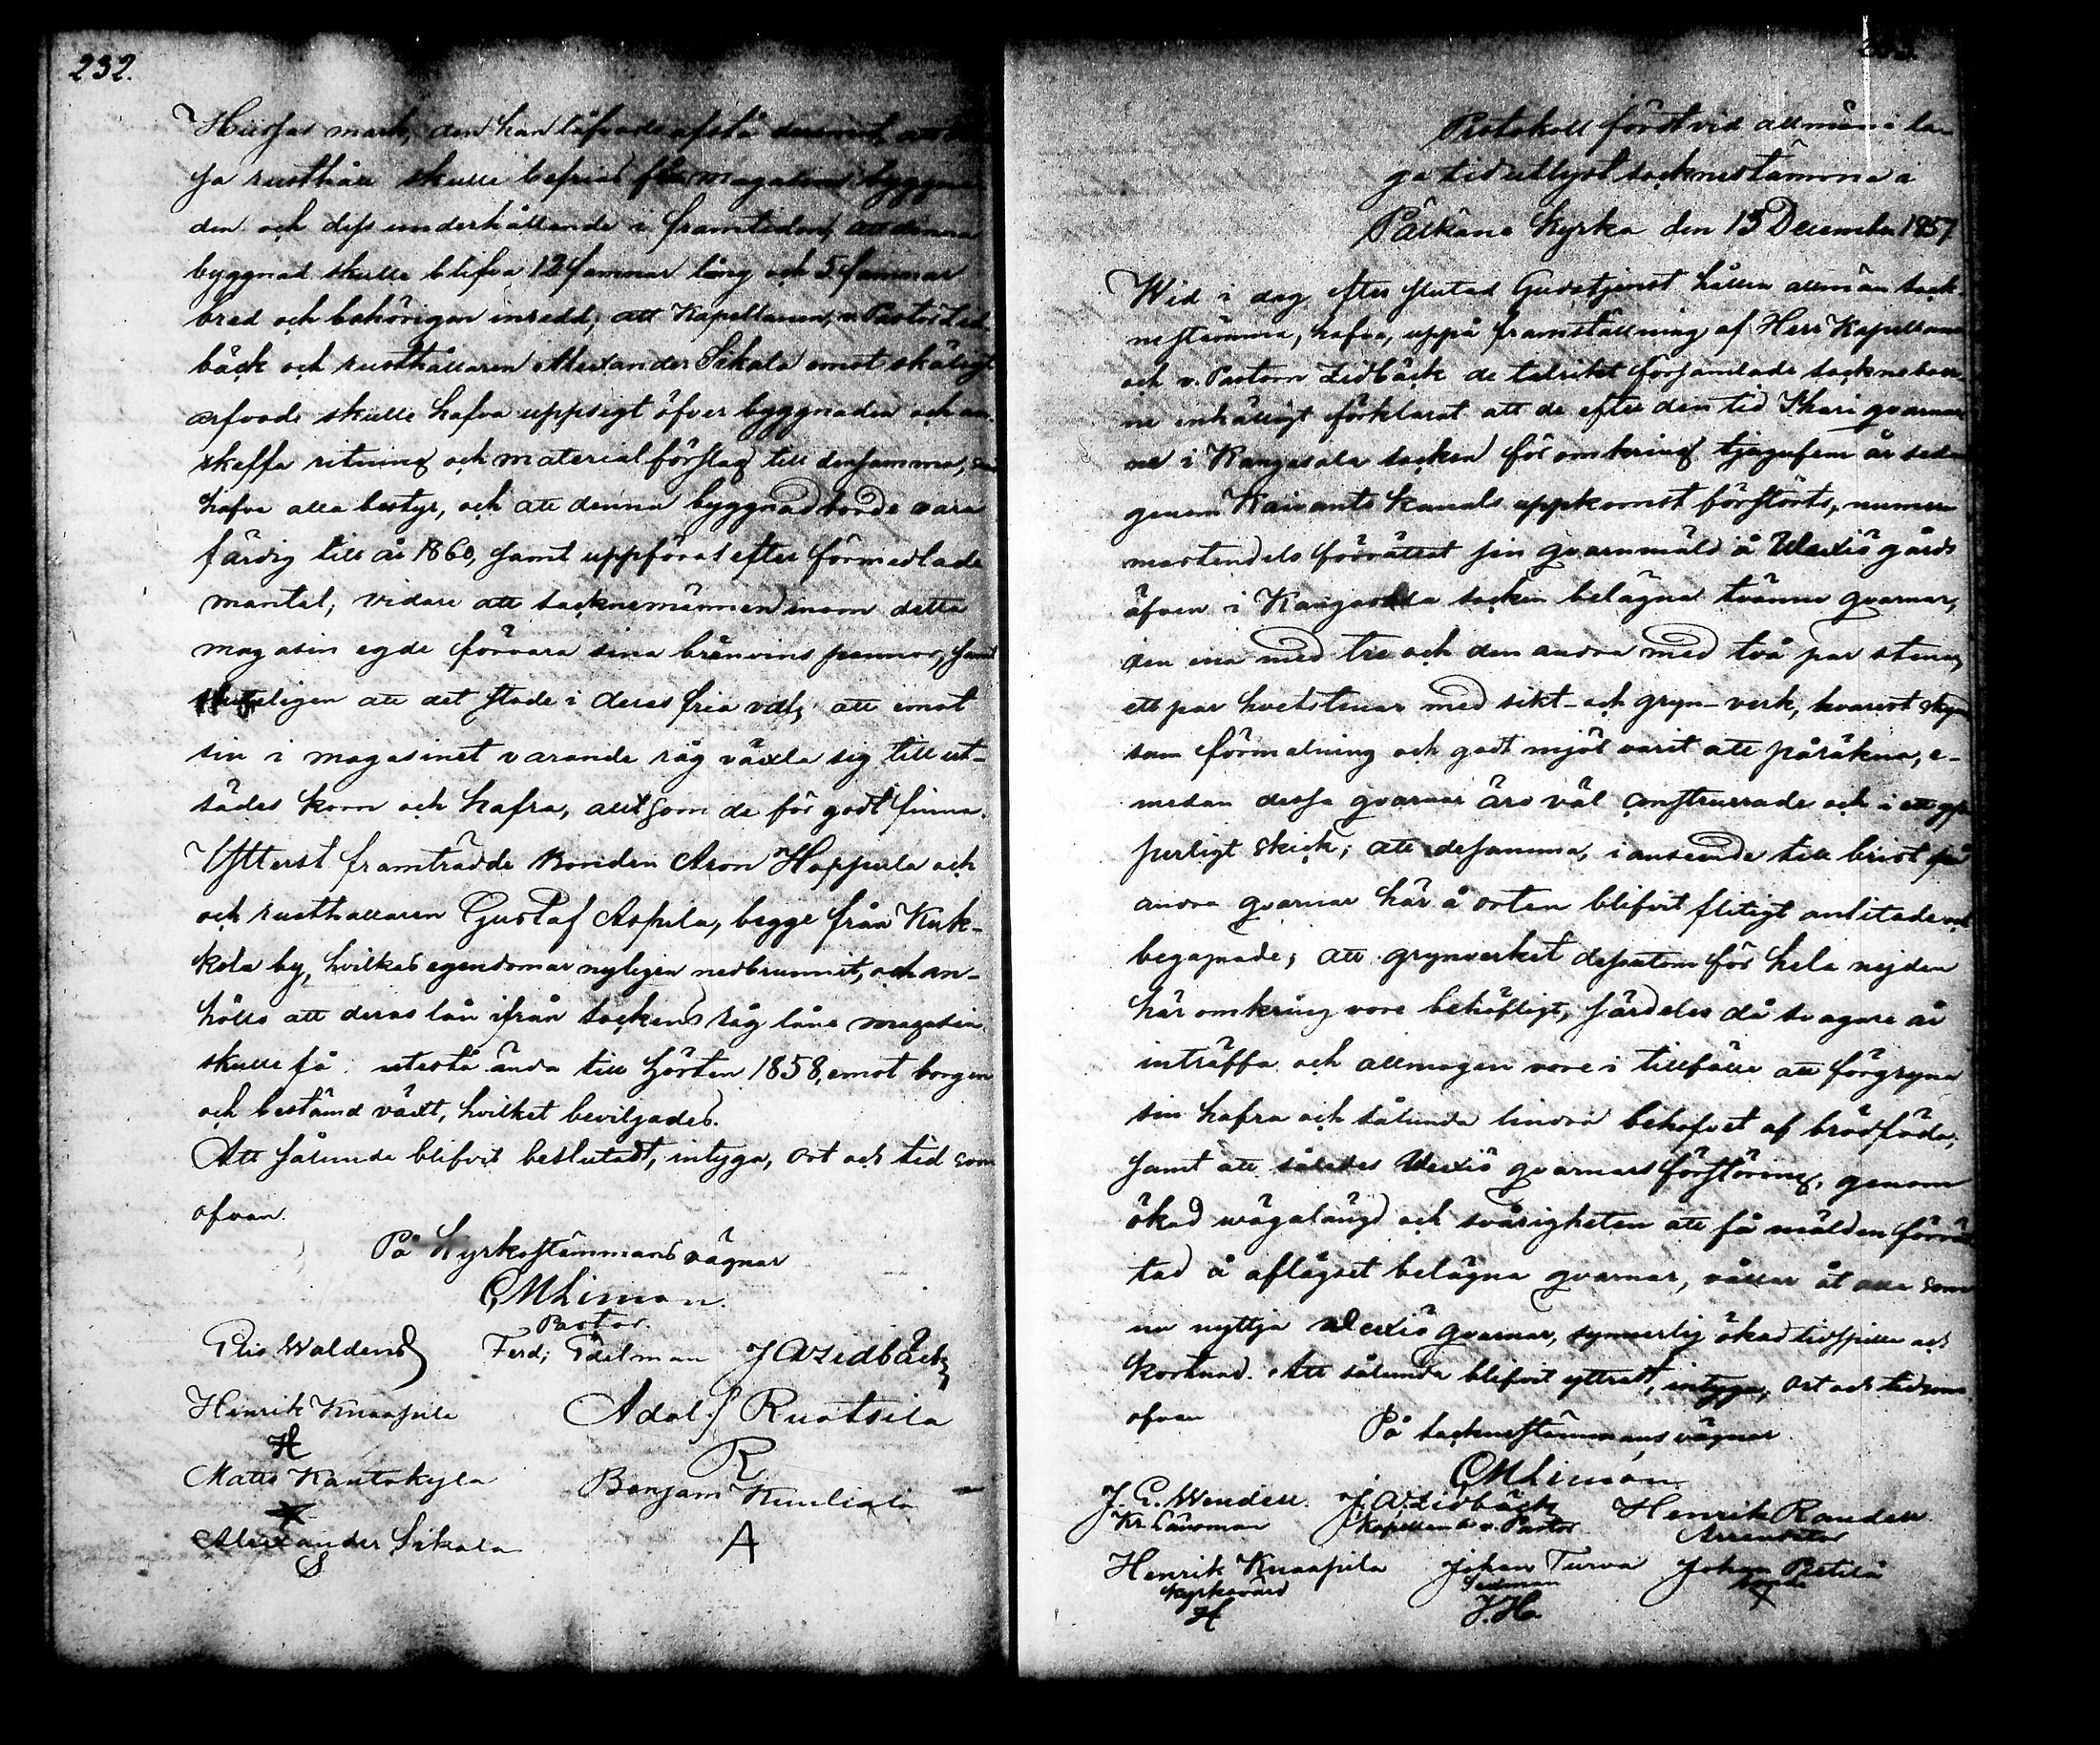 232.
Huisjas mark, den han låfvade afstå deremot, att
sa rusthåll skulle befrias från magasins byggna
den och dess underhållande i framtiden, att denna
byggnad skulle blifva 12 famnar lång och 5 famnar
bred och behörigen inredd; att Kapellanen, v. Pastor Lid
bäck och rusthållaren Alexander Sikala emot skäligt
arfvode skulle hafva uppsigt öfver byggnaden och an
skaffa ritning och materialförslag till densamma,
hafva alla bestyr, och att denna byggnad borde vara
färdig till år 1860, samt uppföras efter förmedlade
mantal; vidare att socknemännen inom detta
magasin egde förvara sina bränvins pannor, samt
slutligen att det stode i deras fria val, att emot
sin i magasinet varande råg växla sig till ut-
sädes korn och hafra, allt som de för godt finna.
Ytterst framträdde Bonden Aron Hoppula och
och rusthållaren Gustaf Aspila, begge från Kuk-
kola by, hvilkas egendomar nyligen nedbrunnit, och an-
hölls att deras lån ifrån sockens råg låne magasin
skulle få utestå ända till hösten 1858, emot borgen
och bestämd växt, hvilket beviljades.
Att sålunda blifvit beslutadt, intyga, ort och tid som
ofvan.
På Kyrkostämmans vägnar
CMLimon.
Pastor.
Elis Waldens Ferd; Edelman J A Lidbäck
Henrik Knaapila Adolf Ruotsila
H R
Matts Kantokyla Benjam Kuuliala
Alexander Sikala A
S
Protokoll fördt vid allmän i la-
ga tid utlyst socknestämma i
Pälkäne Kyrka den 13 December 1857
Wid i dag efter slutad Gudstjenst hållen allmän sock-
nestämma, hafva, uppå framställning af Herr Kapellanen
och v. Pastorn Lidbäck de talrikt församlade sockneboer
ne enhälligt förklarat att de efter den tid Ihari qvarnar
ne i Kangasala socken för omkring tjugufem år sedan
genom Kaivanto kanals uppkomst förstörts, numera
mestendels förrättat sin qvarnmäld å Wääksy gårds
äfven i Kangasala socken belägna tvänne qvarnar,
den ena med tre och den andra med två par stenar,
ett par hvetstenar med sikt- och gryn-verk, hvarest skynd
sam förmalning och godt mjöl varit att påräkna, e-
medan dessa qvarnar äro väl construerade och i ett yp
perligt skick; att desamma, i anseende till brist på
andra qvarnar här å orten blifvit flitigt anlitade och
begagnade; att grynverket dessutom för hela nejden
här omkring vore behöfligt, särdeles då svagare år
inträffa och allmogen vore i tillfälle att förgryna
sin hafra och sålunda lindra behofvet af brödföda;
samt att således Wääksy qvarnars förstöring, genom
ökad wägalängd och svårigheten att få mälden förrät
tad å aflägset belägna qvarnar, vållar åt alla som
nu nyttja Wääksy qvarnar, synnerlig ökad tidspillan och
kostnad. Att sålunda blifvit yttradt, intyga, ort och tid som
ofvan
På socknestämmans vägnar
CMLimón
J. E. Wendell. J. A. Lidbäck Henrik Randell
Kr. Länsman Kapellan o. v. Pastor Arrendator
Henrik Knaapila Johan Turva Johan Pietilä
Kyrkovärd Sexman
H J. H.